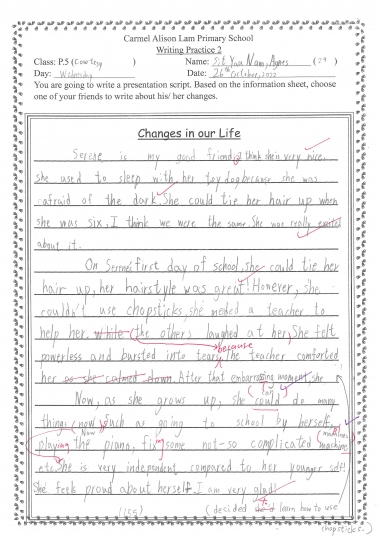 Carmel Alison Lam Primary School
Writing Practice 2
Class: P.5 (Courtesy ) Name: Sit Yau Nam, Agnes (29)
Day: Wednesday Date: 26th October, 2022
You are going to write a presentation script. Based on the information sheet, choose
one of your friends to write about his/ her changes.
Changes in our Life
Serene is my good friend, I think she is very nice.
she used to sleep with her toy dog because she was
afraid of the dark. She could tie her hair up when
she was six, I think we were the same. She was really excited
about it.
On Serene's first day of school, she could tie her
hair up, her hairstyle was great! However, she
couldn't use chopsticks, she needed a teacher to
help her. while (the others laughed at her, She felt
because
powerless and bursted into tears, the teacher comforted
her as she calmed down. After that embarrassing moment, she
can
Now, as she grows up, she could do many
things (now) such as going to school by herself,
Now machines
playing the piano, fixing some not-so complicated machine
etc. she is very independent compared to her younger self!
She feels proud about herself. I am very glad!
(155) (decided to learn how to use
chopsticks.)